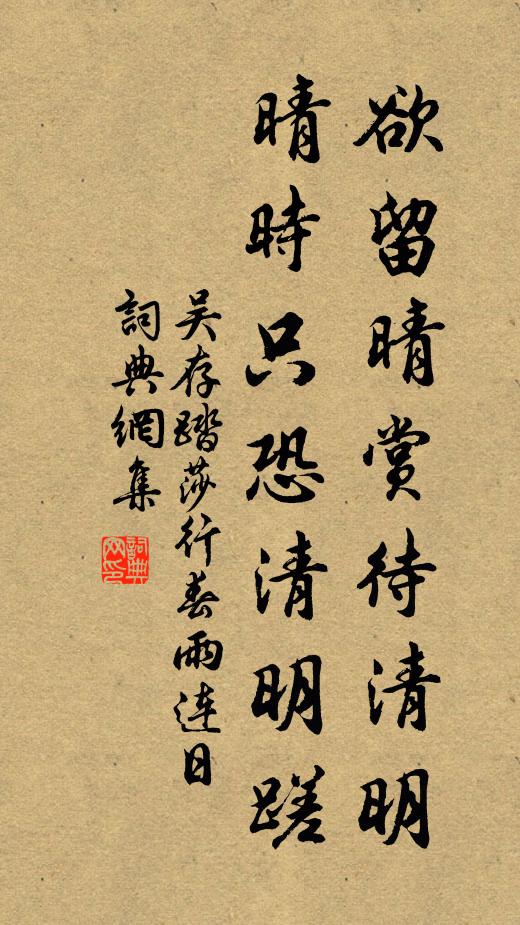 欲留晴賞待清明
晴時只恐清明蹉
吴存踏莎行春雨连日
詞典網集
詞典網印